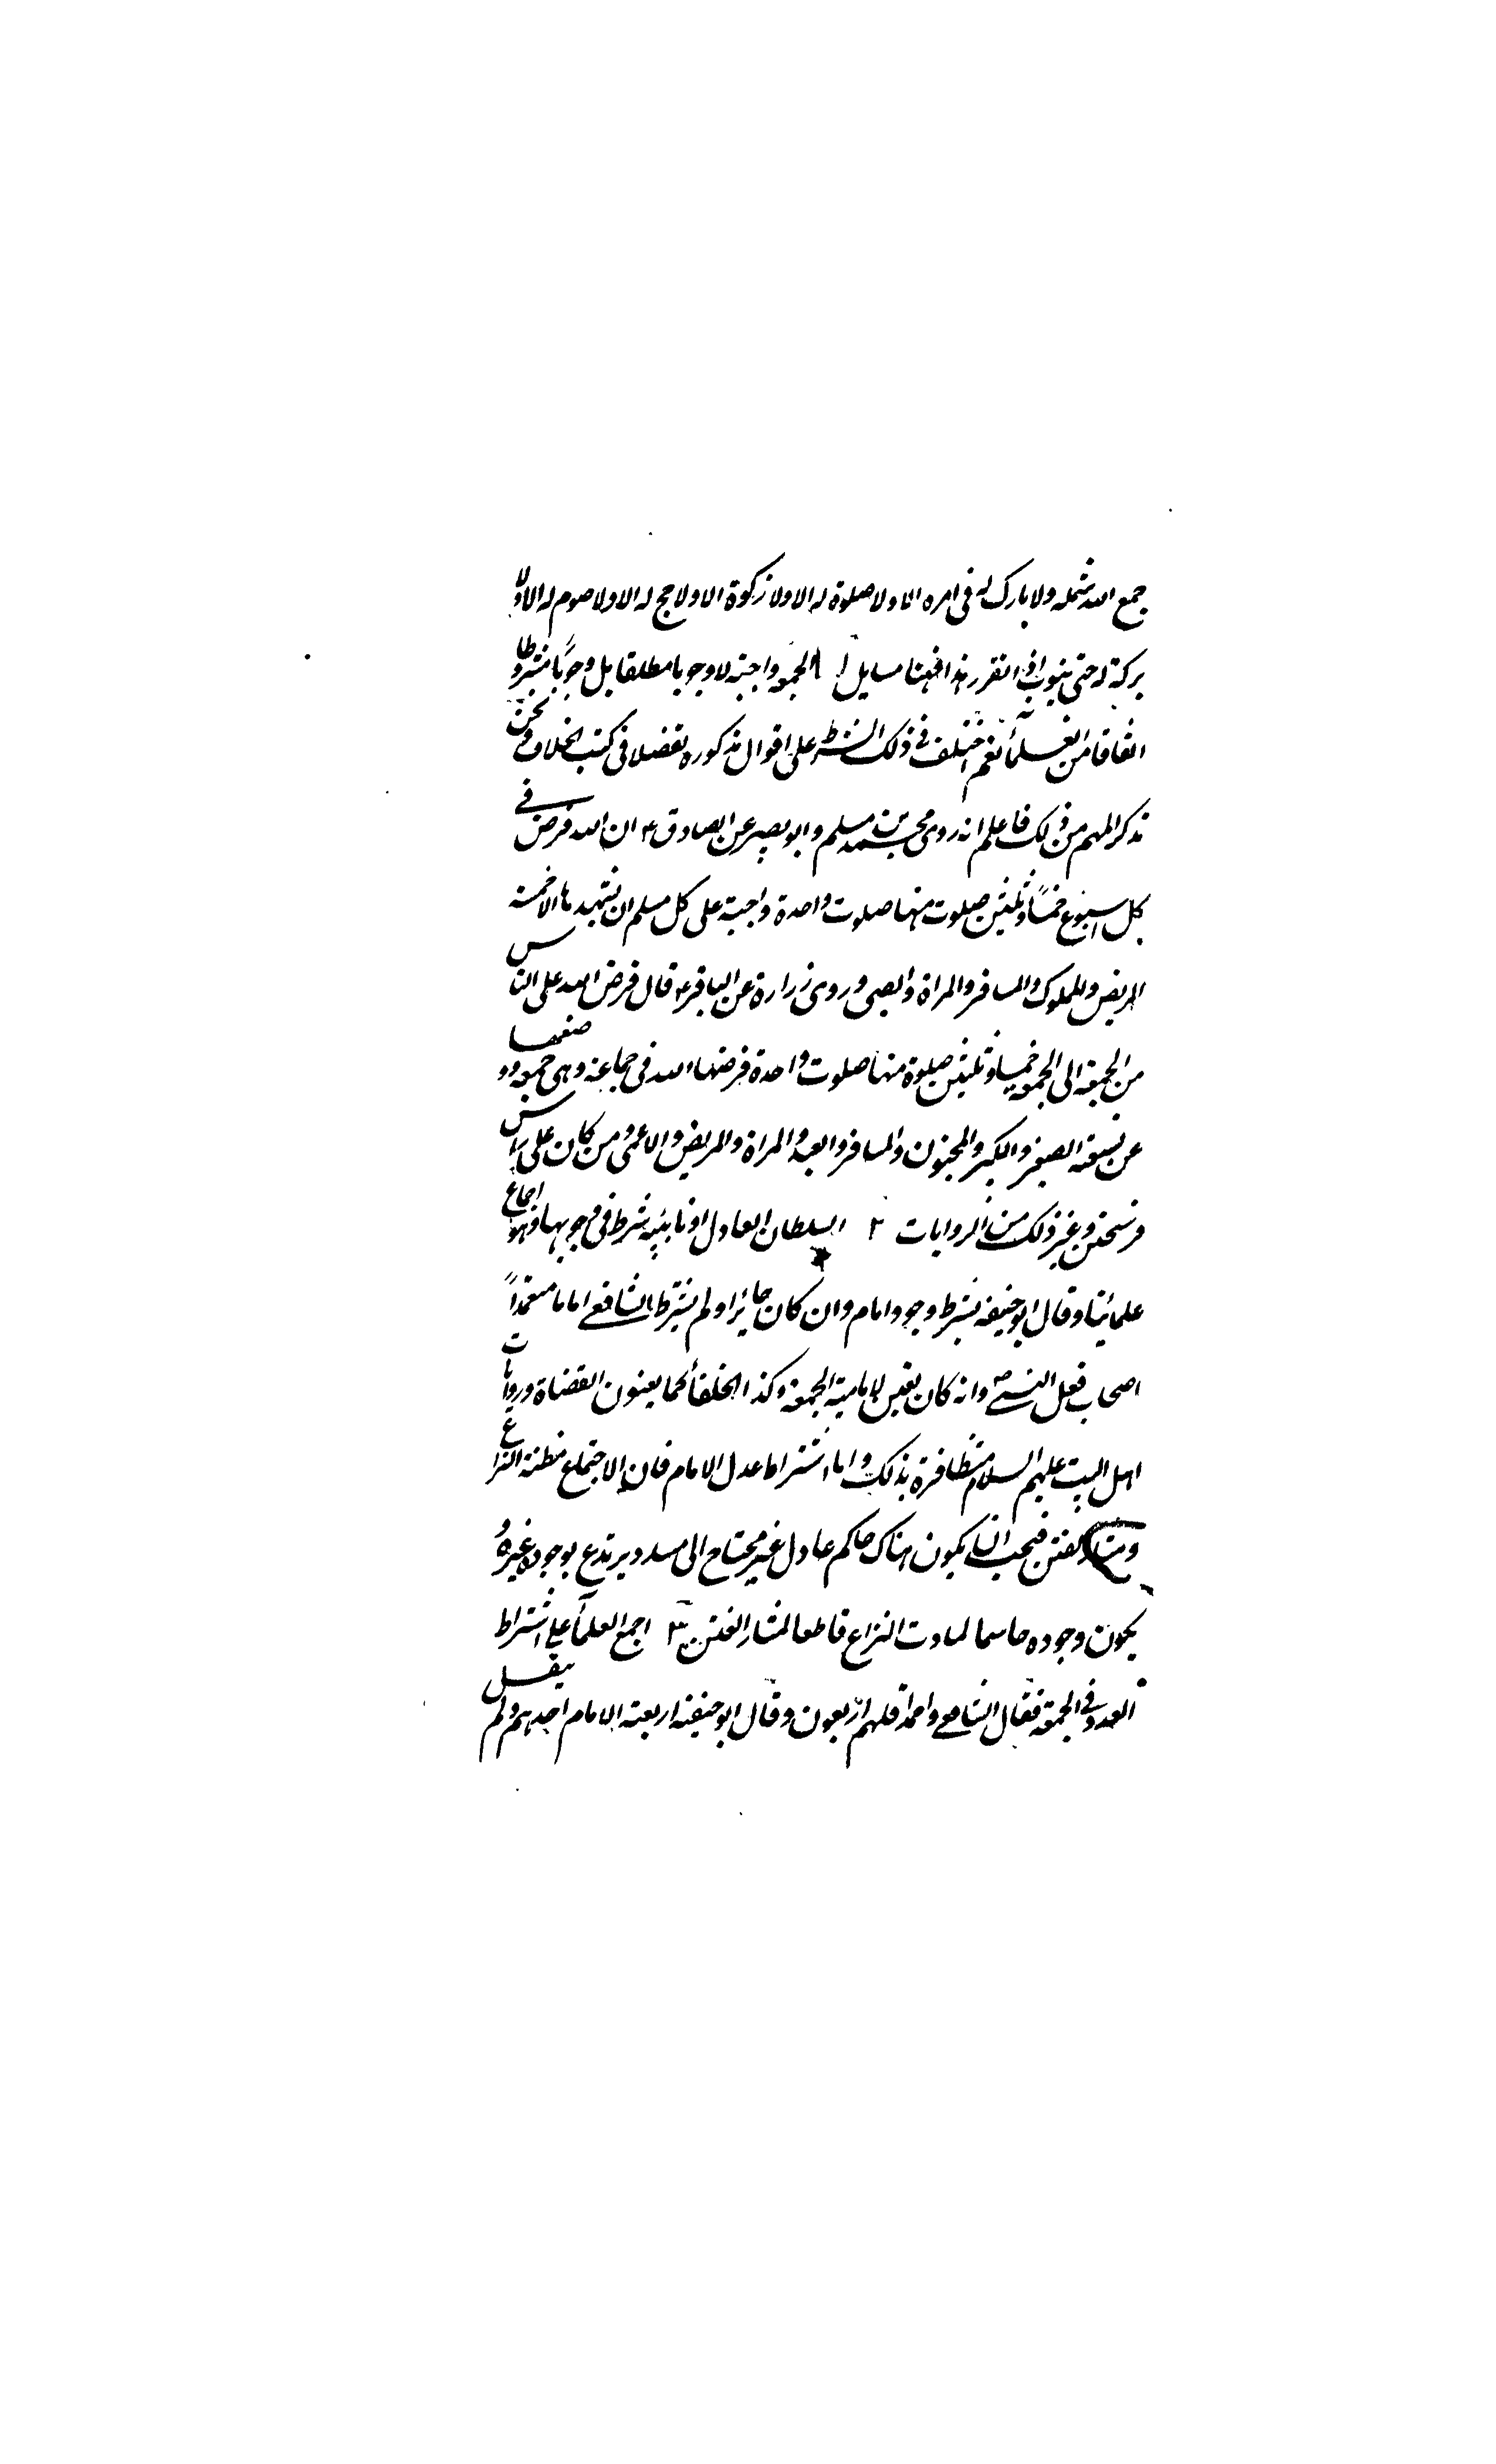 جمع الله شمله ولا بارك له في امره الا ولا صلوة له الا ولا زكوة الا ولا حج له الا ولا صوم له الا ولا
بركة له حتى يتوب اذا تقرر هذا فهنا مسايل ا الجمعة واجبة لا وجوبا مطلقا بل وجوبا مشروطا
اتفاقا من العلمأ نعم اختلف في ذلك الشرط على اقوال مذكورة تفضلا في كتب الخلاف ونحن
نذكر المهم من ذلك فاعلم انه روى محمد بن مسلم وابو بصير عن الصادق ع ان الله فرض في
كل اسبوع خمسًا وثلثين صلوت منها صلوت واحدة واجبة على كل مسلم ان يشهدها الا خمسة
المريض والمملوك والمسافر والمراة والصبي وروى زرارة عن الباقر ع قال فرض الله على الناس
من الجمعة الى الجمعة خمسا وثلثين صلوة منها صلوت واحدة فرضها الله في جماعة وهي جمعة ووضعها
عن تسعة الصغير والكبير والمجنون والمسافر والعبد والمراة والمريض والاعمى ومن كان على راس
فرسخين وغير ذلك من الروايات ٢ السلطان العادل او نايبه شرط في وجوبها وهو اجماع
علمائنا وقال ابو حنيفة يشترط وجود امام وان كان جائرا ولم يشترط الشافعي اماما معتمدًا
اصحاب فعل النبي ص وانه كان يعين لامامية الجمعة وكذا الخلفأ كما يعينون القضاة وروايات
اهل البيت عليهم السلام متظافرة بذلك واما اشتراط عدل الامام فان الاجتماع مظنة النزاع
ومثار الفتن فيجب ان يكون هناك حاكم عادل غير محتاج الى مسدد يرتدع بوجوده غيره و
يكون وجوده حاسما لمادت النزاع قاطعا لمثار الفتن ٣ اجمع العلمأ على اشتراط
العدد في الجمعة فقال الشافعي واحمد اقلهم اربعون وقال ابو حنيفة اربعة الامام احدهم ولم ينقل